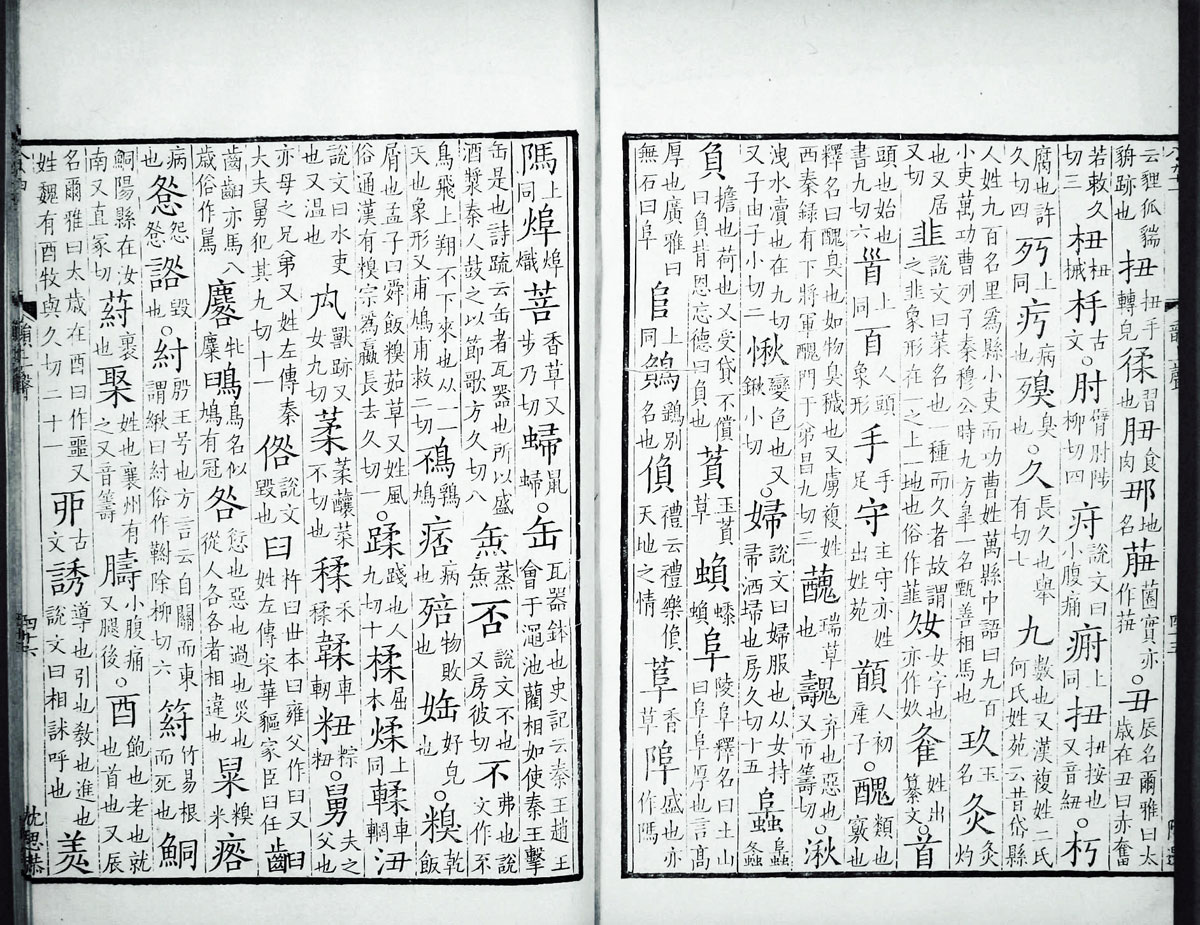 云貍狐貒貈跡也 扭扭手轉皃 猱習也 䏔食肉 𨙻地名 莥薗實亦作莥○丑辰名爾雅曰太歲在丑曰赤奮
若敕久切三 杻杻械 杽古文○肘臂肘陟柳切四 疛說文曰小腹痛 㾈上同 扭扭按也又音紐○朽
腐也許久切四 㱙上同 㽲病也 殠臭也○久長久也舉有切七 九數也又漢複姓二氏何氏姓苑云昔岱縣
人姓九百名里爲縣小吏而功曹姓萬縣中語曰九百小吏萬功曹列子秦穆公時九方臯一名甄善相馬也 玖玉名 灸灸灼
也又居又切 韭說文曰菜名也一種而久者故謂之韭象形在一之上一地也俗作韮 奺女字也亦作妏 㲃姓出纂文○首
頭也始也書九切六 𩠐上同 百人頭象形 手手足 守主守亦姓出姓苑 䭭人初產子○醜類也竅也
釋名曰醜臭也如物臭穢也又虜複姓西秦錄有下將軍醜門于弟昌九切三 瑞草也 魗弃也惡也又市籌切○湫
洩水瀆也在九切又子由子小切二 愀變色也又鍬小切○婦說文曰婦服也从女持帚洒埽也房久切十五 螽
負擔也荷也又受貸不償曰負背恩忘德曰負也 萯王萯草 蝜蟋蝜 阜陵阜釋名曰土山曰阜阜厚也言高
厚也廣雅曰無石曰阜 𨸏上同 鴭鵽別名也 偩禮云禮樂偩天地之情 香草 盛也亦作䧞
䧞上同 埠埠熾 菩香草又步乃切 婦鼠婦○缶瓦器鉢也史記云秦王趙王會于澠池藺相如使秦王擊
缶是也詩疏云缶者瓦器也所以盛酒漿秦人鼓之以節歌方久切八 缹蒸缹 否說文不也又房彼切 不弗也說文作不
鳥飛上翔不下來也从一一天也象形又甫鳩甫救二切 鴀鳩 痦病也 殕物敗也 㛅好皃○糗乾飯
屑也孟子曰舜飯糗茹草又姓風俗通漢有糗宗爲嬴長去久切一○蹂踐也人九切十 揉屈本 煣上同 輮車輞 沑
說文曰水吏也又溫也 禸獸跡又女九切 葇葇釀菜不切也 䅦禾䅦 鞣車軔 粈粽粈○舅夫之父也
亦母之兄弟又姓左傳秦大夫舅犯其九切十一 倃說文毀也 臼杵臼世本曰雍父作臼又姓左傳宋華貙家臣曰任
齒齨亦馬八歲俗作 麔牝麋 鳥名似鳩有冠 咎愆也惡也過也災也從人各各者相違也 㮕糗米
病也 怨 毀也○紂殷王号也方言云自關而東謂緧曰紂俗作靷除柳切六 箹竹易根而死也 鮦
鮦陽縣在汝南又直冢切 葤裹也 聚姓也襄州有之又音籌 小腹痛又腿後○酉飽也老也就也首也又辰
名爾雅曰太歲在酉曰作噩又姓魏有酉牧與久切二十一 丣古文 誘導也引也教也進也說文曰相訹呼也 羑
沈思恭